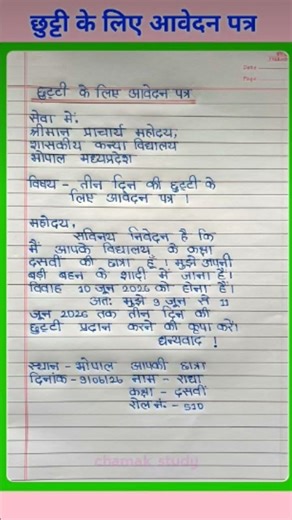 छुट्टी के लिए आवेदन पत्र
Date
Page
छुट्टी के लिए आवेदन पत्र
सेवा में,
श्रीमान प्राचार्य महोदय,
शासकीय कन्या विद्यालय
भोपाल मध्यप्रदेश
विषय - तीन दिन की छुट्टी के
लिए आवेदन पत्र ।
महोदय,
सविनय निवेदन है कि
मैं आपके विद्यालय के कक्षा
दसवीं की छात्रा हूँ । मुझे अपनी
बड़ी बहन के शादी में जाना है।
विवाह 10 जून 2026 को होना है।
अतः मुझे 9 जून से 11
जून 2026 तक तीन दिन की
छुट्टी प्रदान करने की कृपा करें।
धन्यवाद !
स्थान - भोपाल आपकी छात्रा
दिनांक - 9/06/26 नाम - राधा
कक्षा - दसवीं
रोल नं. - 510
chamak study